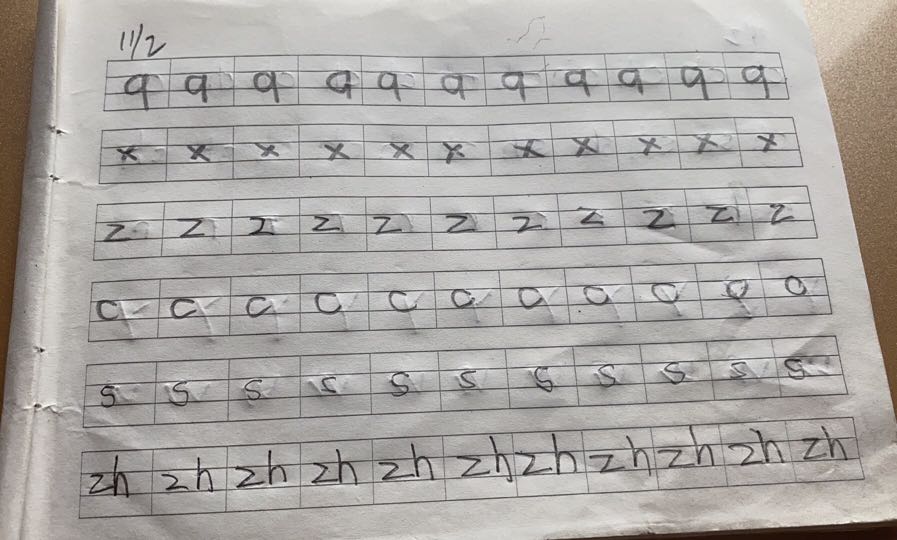 11/2
q q q q q q q q q q q
x x x x x x x x x x x
z z z z z z z z z z z
c c c c c c c c c c c
s s s s s s s s s s s
zh zh zh zh zh zh zh zh zh zh zh